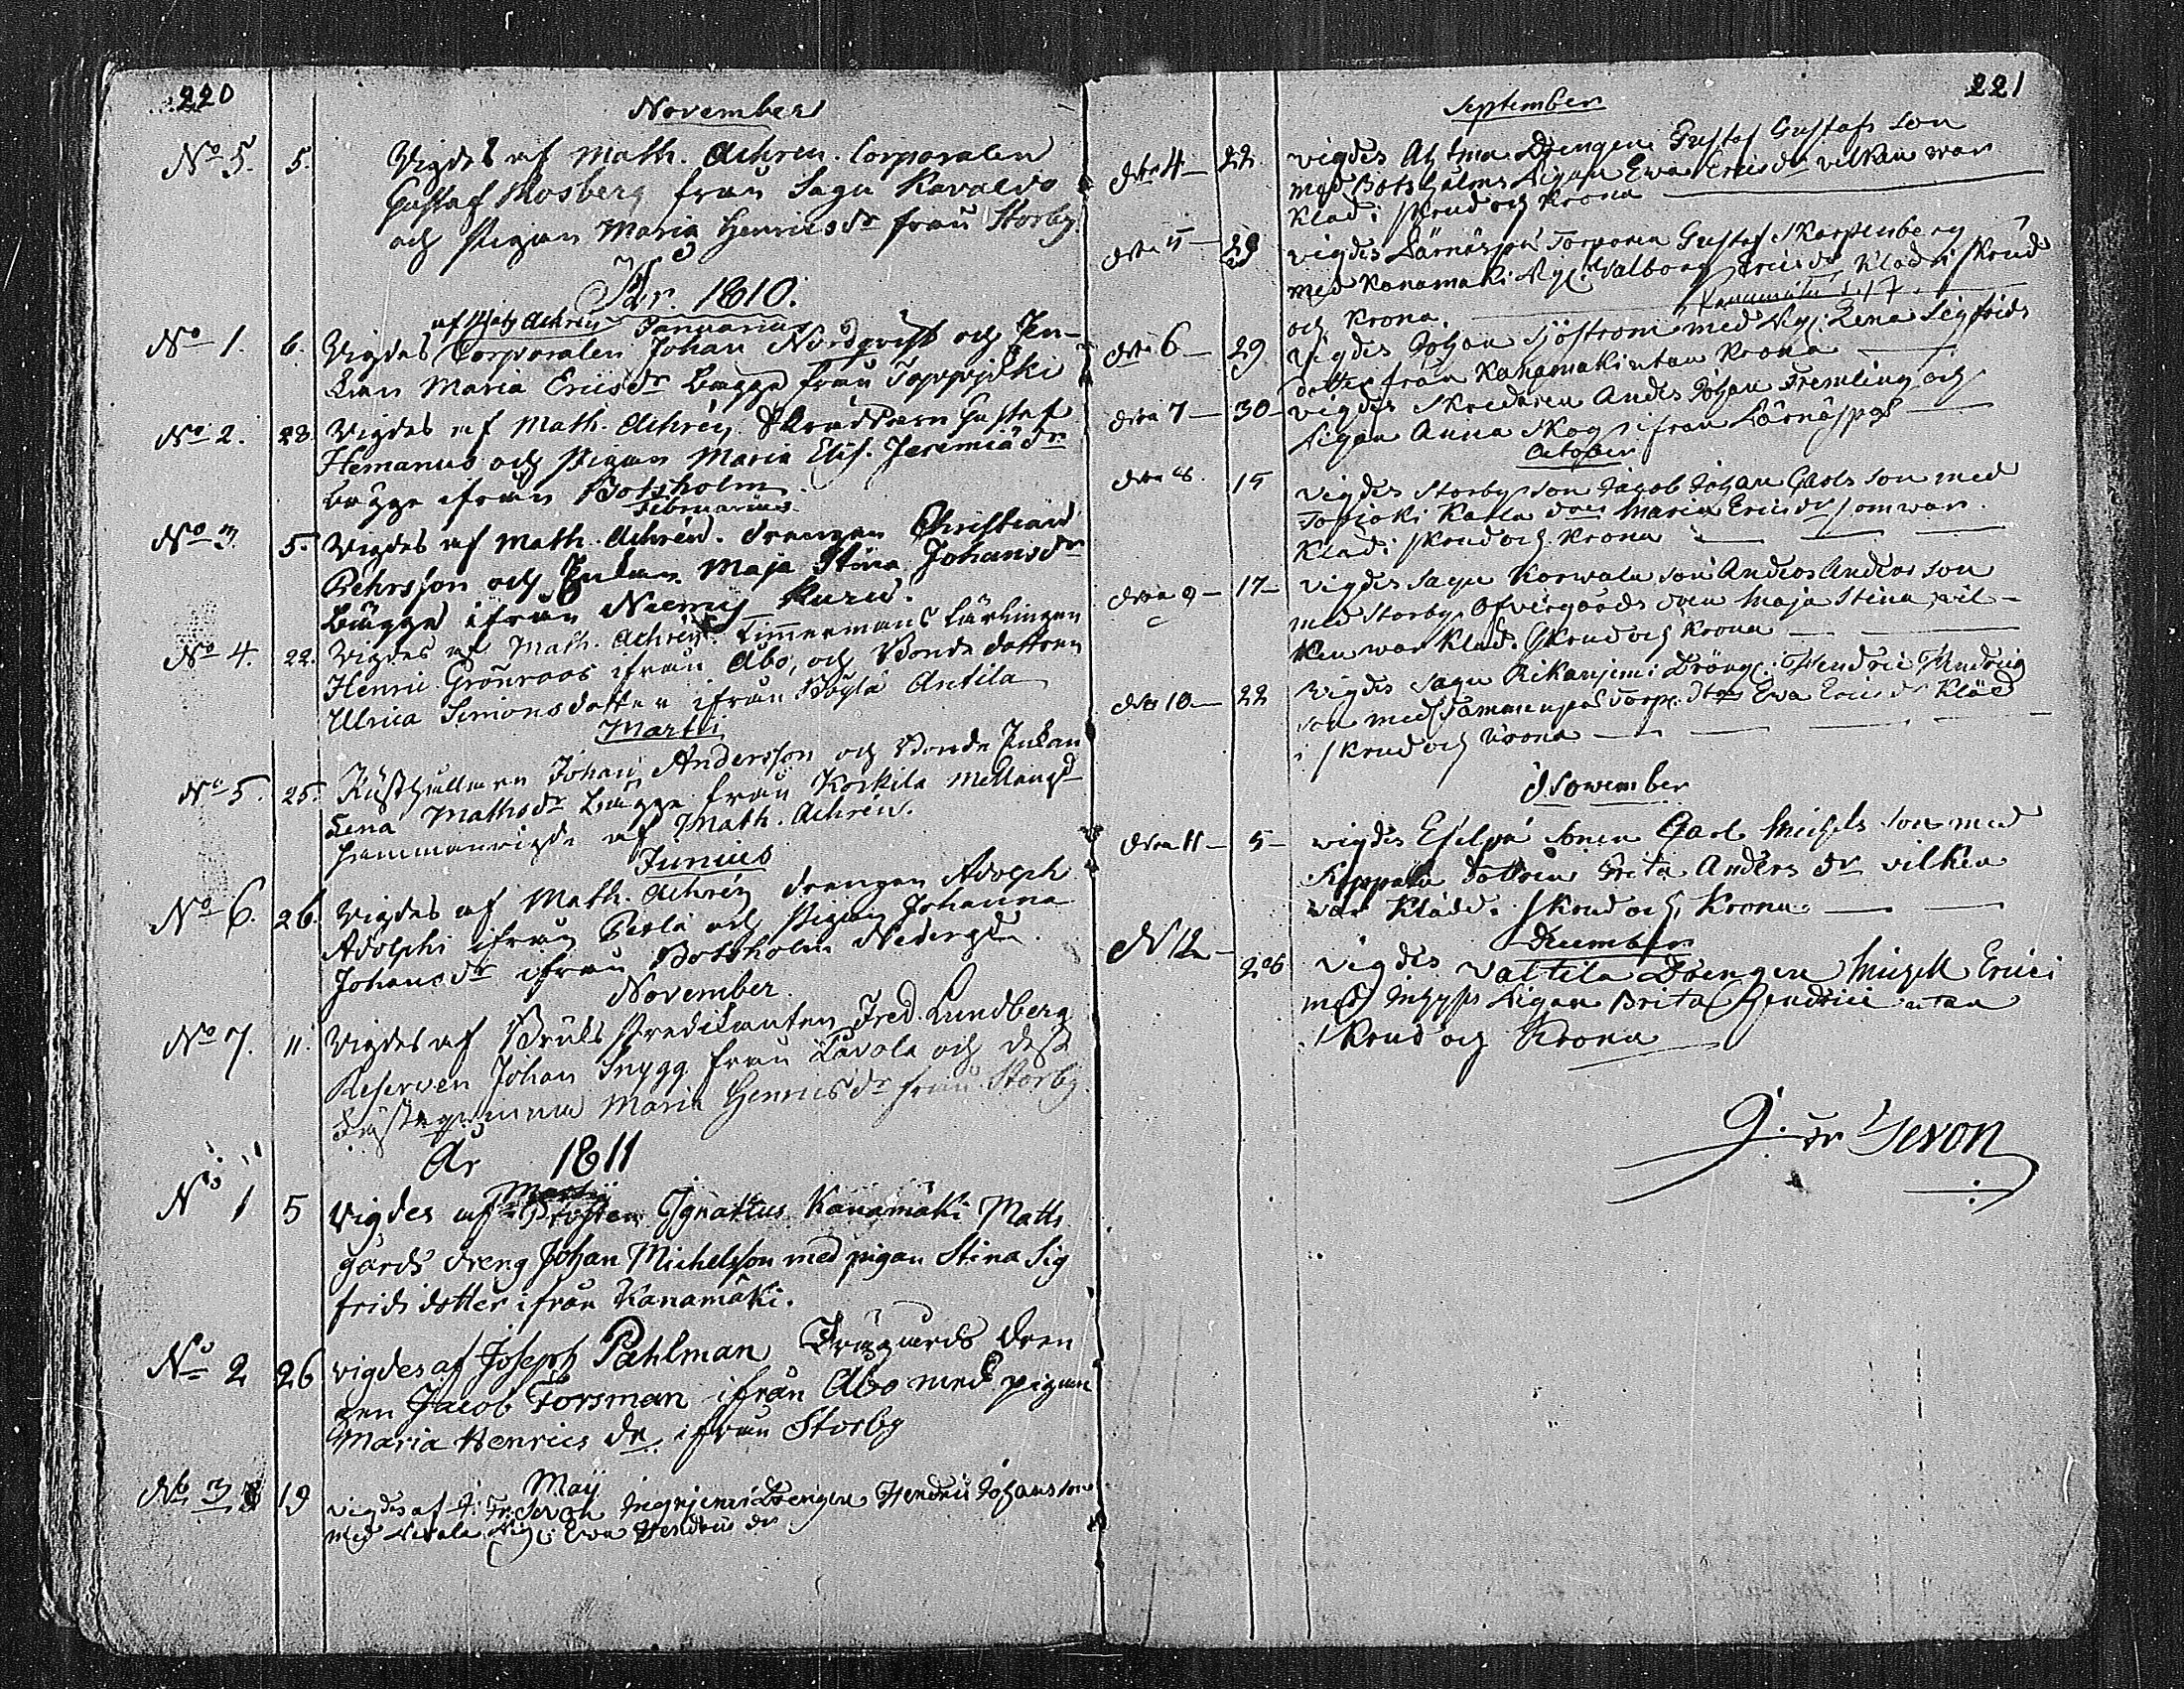 220
November
No 5. 5. Vigdes af Math. Achren. Corporalen
Gustaf Mosberg från Sagu Kavaldo
och Pigan Maria Henricsdr från Storby.
År 1810.
af Math Achrén Januarius
No 1. 6. Vigdes Corporalen Johan Nordqvist och En-
kan Maria Ericsdr bägge från Toppjoki
No 2. 28. Vigdes af Math. Achrén, Gustaf
Hemanus och Pigan Maria Elis. Jeremiædr
bägge ifrån Botsholm.
Februarius
No 3. 5. Vigdes af Math. Achrén. Drengen Christian
Pehrsson och Enkan Maja Stina Johansdr
bägge ifrån Niemis Kuru.
No 4. 22. Vigdes af Math. Achrén. Timmermans Lärlingen
Henric Grönroos ifrån Åbo, och Bonde dottren
Ulrica Simonsdotter ifrån Böyla Antila
Martii
No 5. 25. Rusthållaren Johan Andersson och Bonde Enkan
Lena Mathsdr bägge från Korkila Mellangd
sammanvigde af Math. Achrén.
Junius
No 6. 26. Vigdes af Math. Achrén Drengen Adolph
Adolphi ifrån Perla och Pigan Johanna
Johansdr ifrån Botsholm Nedergd.
November
No 7. 11. Vigdes af Bruks Predikanten Fred. Lundberg
Reserven Johan Snygg från Lavola och dess
Fästeqvinna Maria Henricsdr från Storby.
År 1811
Martii
No 1 5 vigdes af Prosten Ignattus Kanamäki Matts
gårds dreng Johan Michelsson med pigan Stina Sig
frids dotter ifrån Kanamäki.
No 2 26 vigdes af Joseph Pahlman Trägårds dren
gen Jacob Forsman ifrån Åbo med pigan
Maria Henrics dr ifrån Storby
Maij
No 3 19 vigdes af Drengen Hendric Johansson
med Pig: Ewa Hendrics dr
221
September
dito 4 22 vigdes Drengen Gustaf Gustafs son
med Botsholms Pigan Ewa Erics dr vilken war
Klad i skrud och Krona
dito 5 vigdes Särnäsjon Torparen Gustaf Skarpenberg
med Kanamäki Pig: Valborg Erics dr Klad i skrud
och Krona.
dito 6 29 vigdes Johan Sjöström med Pig: Lena Sigfrids
dotter från Kanamäki utan Krona
dito 7 30 vigdes Skredaren Anders Johan Fremling och
Pigan Anna Skog ifrån
October
dito 8 15 vigdes Storby son Jacob Johan Carls son med
Topjoki Karla Maria Erics dr som war
Klad i skrud och Krona
dito 9 17 vigdes Sagu Korwala son Anders Anders son
med Storby Öfvergårds Maja Stina wil-
ken war Klad i skrud och Krona
dito 10 22 Vigdes Sagu Rikanjemi Dräng: Hendric Hendrics
son med Torp: Ewa Erics dr Kläd
i skrud och Krona
November
dito 11 5 vigdes sonen Carl Michels son med
Keppala dottren Brita Anders dr vilken
war Klädd i skrud och Krona
December
N 12 26 vigdes Valtila Drengen Michell Erici
med Pigan Brita Hendrici utan
skrud och Krona